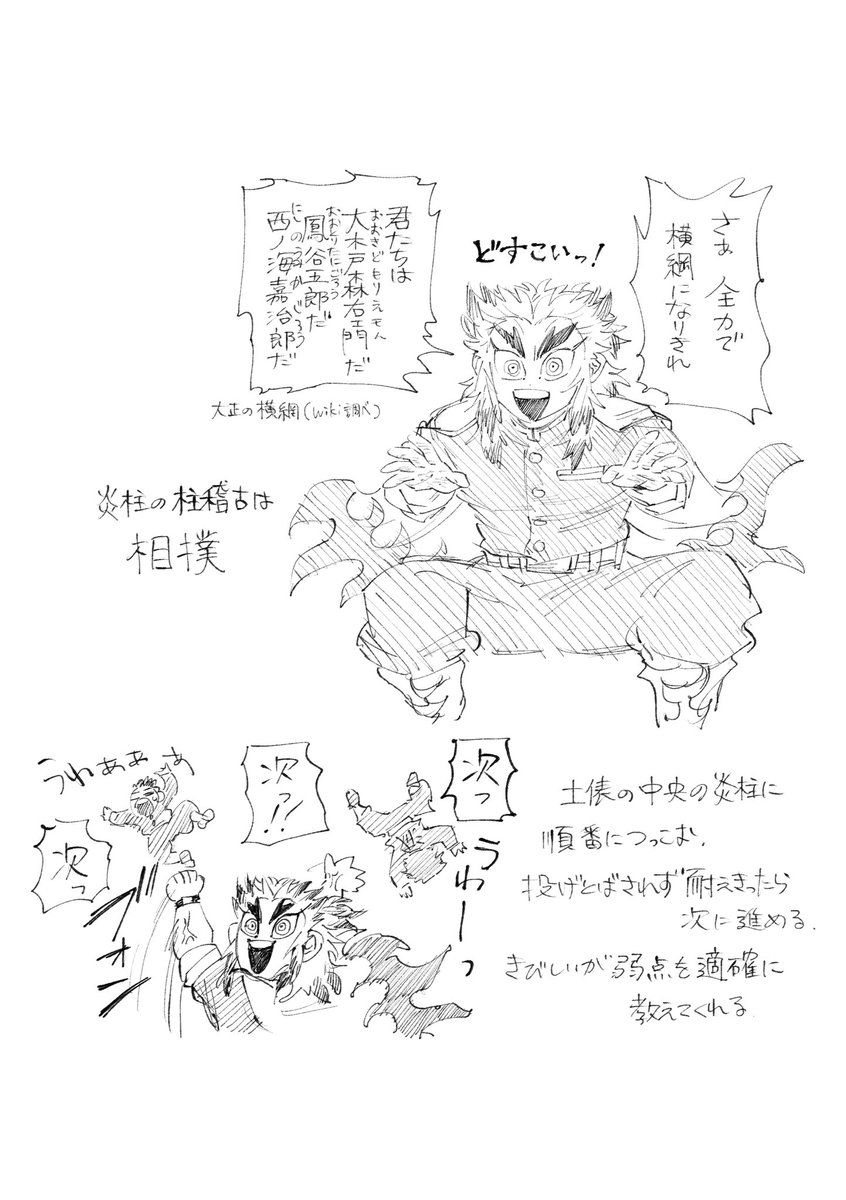 さあ 全力で
横綱になりきれ
どすこいっ！
君たちは
大木戸森右エ門だ
おおきどもりえもん
鳳谷五郎だ
おおとりたにごろう
西ノ海嘉治郎だ
にしのうみかじろう
大正の横綱(wiki調べ)
炎柱の柱稽古は
相撲
次っ
次っ!!
うわぁぁぁ
次っ
ブォン
うわーっ
土俵の中央の炎柱に
順番につっこむ。
投げとばされず耐えきったら
次に進める。
きびしいが弱点を適確に
教えてくれる